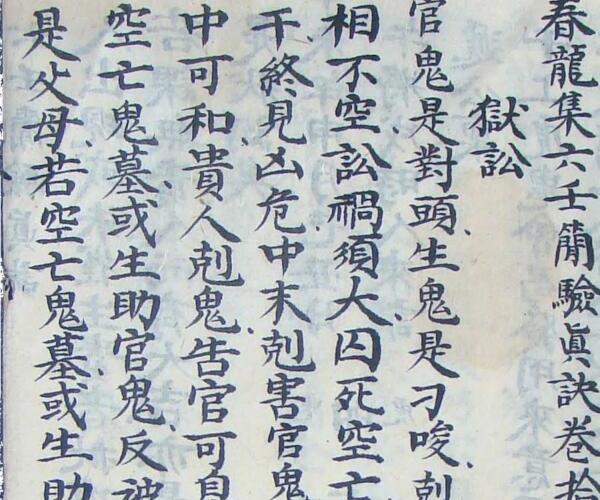 春龍集六壬簡驗眞訣卷拾
獄訟
官鬼是對頭生鬼是刁唆剋
相不空訟禍須大囚死空亡
干終見凶危中末剋害官鬼
中可和貴人剋鬼告官可
空亡鬼墓或生助官鬼反被
是父母若空亡鬼墓或生助